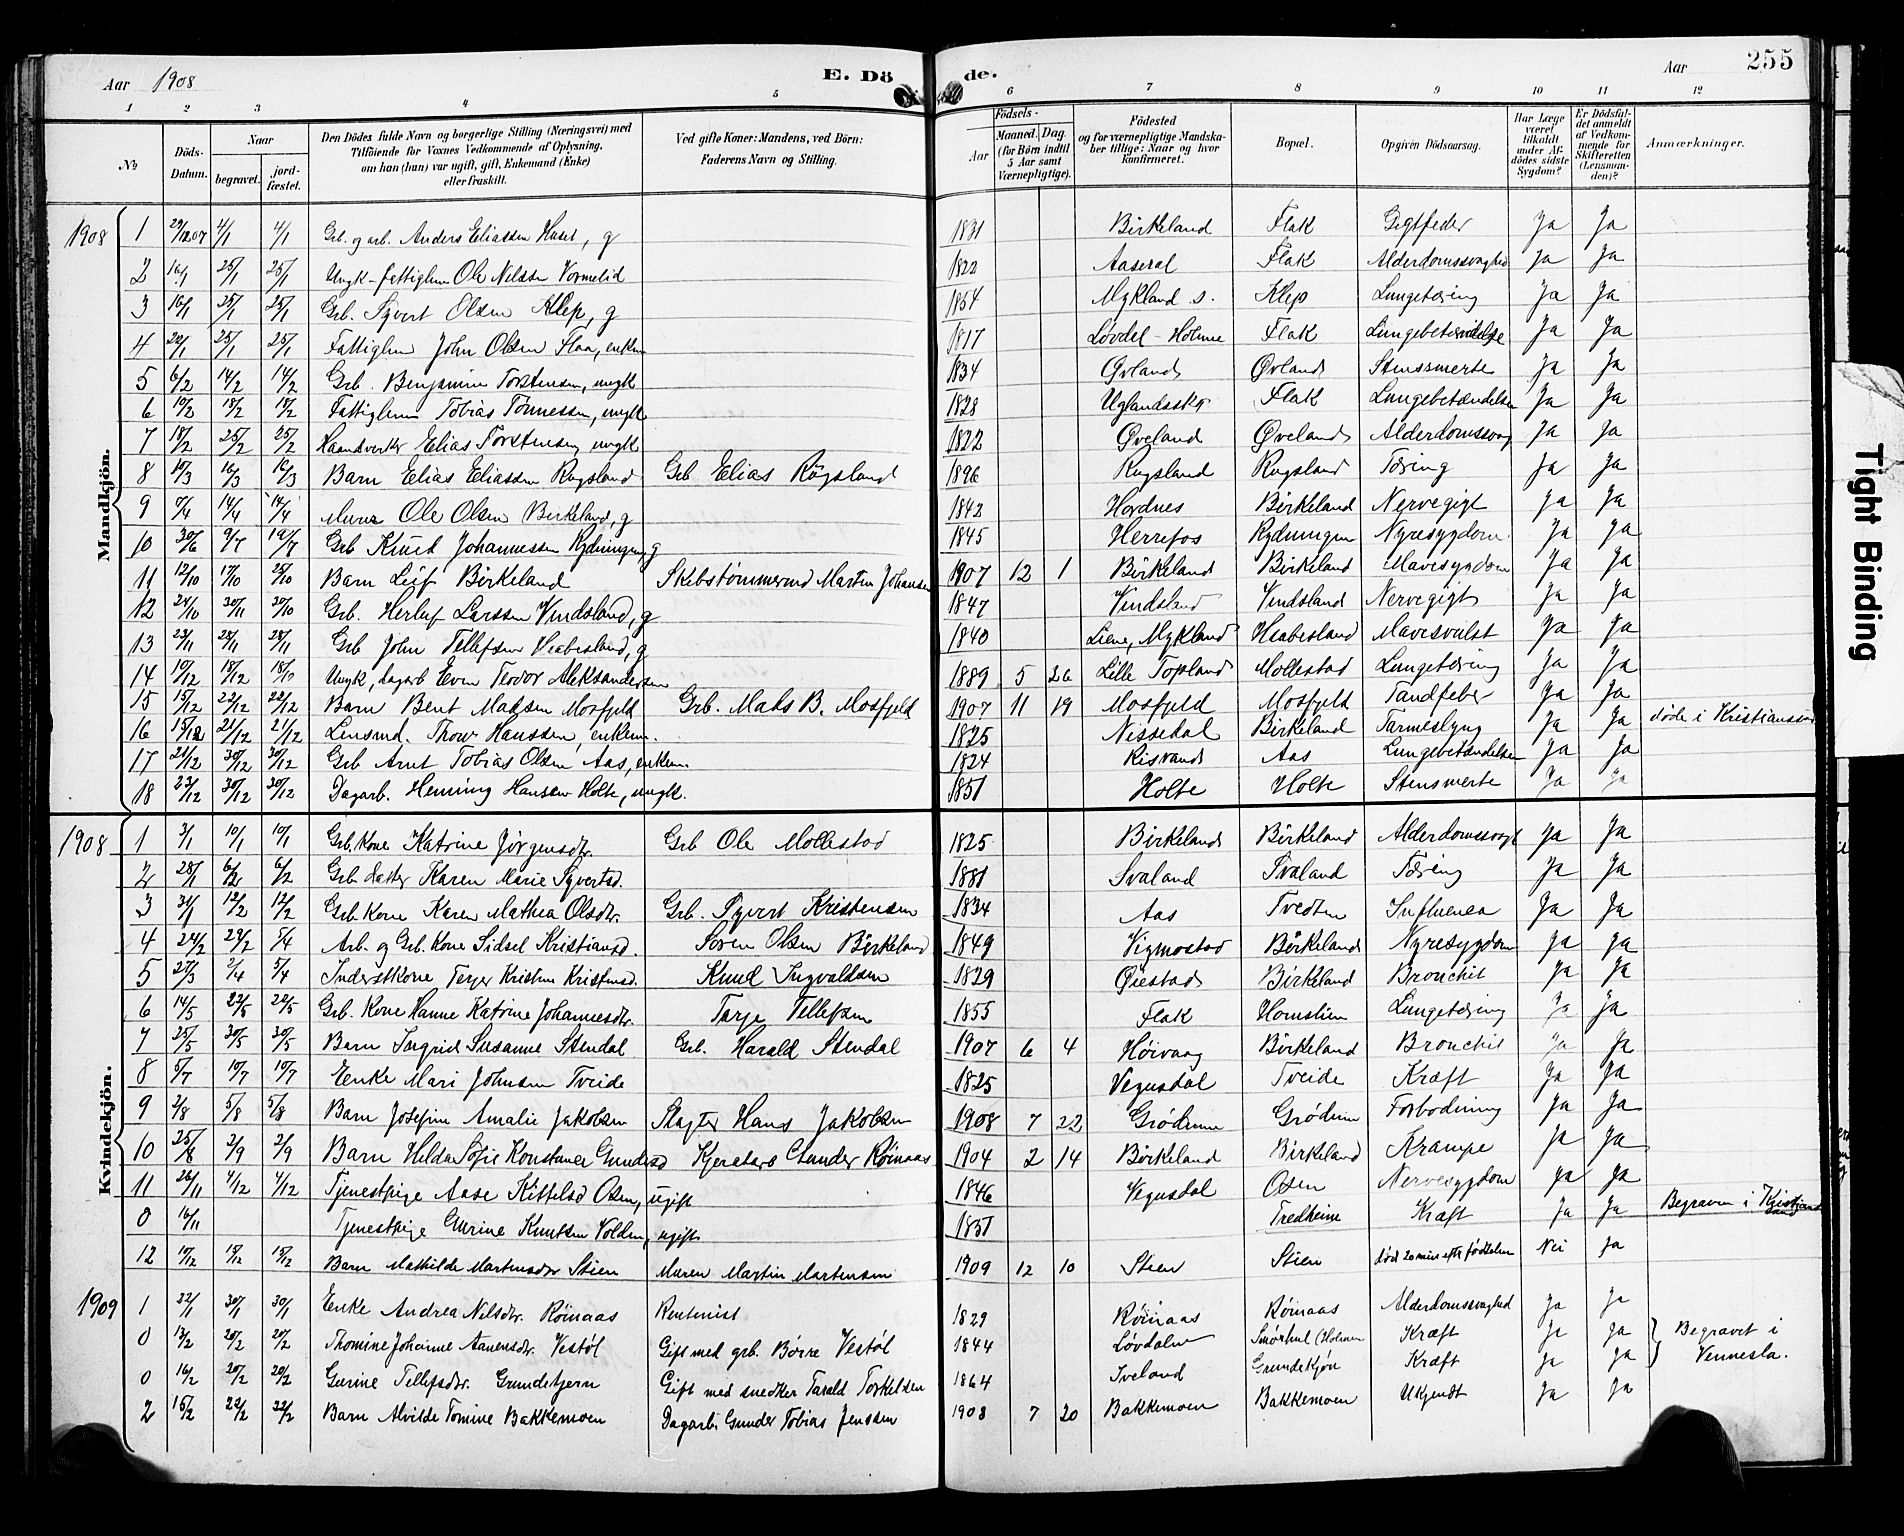 Aar 1908 E. Dö de. Aar 255
1 2 3 4 5 6 7 8 9 10 11 12
No
Döds-Datum.
Naar
begravet.
jordfæstet.
Den Dödes fulde Navn og borgerlige Stilling (Næringsvei) med
Tilföiende for Voxnes Vedkommende af Oplysning,
om han (hun) var ugift, gift, Enkemand (Enke)
eller fraskilt.
Ved gifte Koner: Mandens, ved Börn:
Faderens Navn og Stilling.
Födsels-
Aar
Maaned. Dag.
(for Börn indtil
5 Aar samt
Værnepligtige).
Födested
og for værnepligtige Mandska-
ber tillige: Naar og hvor
konfirmeret.
Bopæl.
Opgiven Dödsaarsag.
Har Læge
været
tilkaldt
under Af-
dödes sidste
Sygdom?
Er Dödsfal-
det anmeldt
af Vedkom-
mende for
Skifteretten
(Lensman-
den)?
Anmærkninger.
Mandkjön.
1908 1 29/12 07 4/1 4/1 Grb. og arb. Anders Eliassen Huset, g 1831 Birkeland Flak Gigtfeber Ja Ja
2 16/1 25/1 25/1 Ungk-fattiglem Ole Nilssen Vormelid 1822 Aaseral Flak Alderdomssvaghed Ja Ja
3 16/1 25/1 25/1 Grb. Syvert Olsen Klep, g 1854 Mykland s. Klep Lungetæring Ja Ja
4 22/1 25/1 25/1 Fattiglem John Olsen Flaa, enkem 1817 Løvdal-Holme Flak Lungebetændelse Ja Ja
5 6/2 14/2 14/2 Grb. Benjamin Torstensen, ungk 1834 Øvland Øvland Stenssmerte Ja Ja
6 10/2 18/2 18/2 Fattiglem Tobias Tønnessen, ungk 1828 Uglandssk. Flak Lungebetændelse Ja Ja
7 18/2 25/2 25/2 Haandverker Elias Torstensen, ungk 1822 Øveland Øveland Alderdomssvag Ja Ja
8 10/3 16/3 16/3 Barn Elias Eliassen Rugsland Grb Elias Rögsland 1896 Rugsland Rugsland Tæring Ja Ja
9 7/4 14/4 14/4 Murer Ole Olsen Birkeland, g 1842 Hordnes Birkeland Nervegigt Ja Ja
10 30/6 9/7 19/7 Grb Knut Johannessen Rydningen, g 1845 Herrefos Rydningen Nyresygdom Ja Ja
11 12/10 17/10 25/10 Barn Leif Birkeland Skibstømmermd Martin Johansen 1907 12 1 Birkeland Birkeland Mavesygdom Ja Ja
12 24/10 30/11 30/10 Grb. Herluf Larssen Vindsland, g 1847 Vindsland Vindsland Nervegigt Ja Ja
13 23/11 28/11 28/11 Grb John Tellefsen Heabesland, g 1840 Liene, Mykland Heabesland Mavesvulst Ja Ja
14 10/12 18/12 18/12 Ungk, dagarb Even Teodor Aleksandersen 1889 5 26 Lille Topland Mollestad Lungetæring Ja Ja
15 15/12 22/12 22/12 Barn Bent Madsen Mosfjeld Grb. Mads B. Mosfjeld 1907 11 19 Mosfjeld Mosfjeld Tandfeber Ja Ja
16 15/12 21/12 21/12 Lensmd. Thor Hanssen, enkem. 1825 Nissedal Birkeland Tarmeslyng Ja Ja døde i Kristianssand
17 21/12 30/12 30/12 Grb Arnt Tobias Olsen Aas, enkem 1824 Risvand Aas Lungebetændelse Ja Ja
18 23/12 30/12 30/12 Dagarb. Henning Hansen Holte, ungk. 1851 Holte Holte Stensmerte Ja Ja
Kvindekjön.
1908 1 3/1 10/1 10/1 Grb. Kone Katrine Jörgensdtr. Grb Ole Mollestad 1825 Birkeland Birkeland Alderdomssvagt Ja Ja
2 28/1 6/2 6/2 Grb. datter Karen Marie Syvertsd. 1881 Svaland Svaland Tæring Ja Ja
3 31/1 12/2 12/2 Grb. Kone Karen Mathea Olsdtr. Grb. Syvert Kristensen 1834 Aas Tvedten Influensa Ja Ja
4 24/2 29/2 5/4 Arb. og Grb. Kone Sidsel Kristiansd. Søren Olsen Birkeland 1849 Vigmostad Birkeland Nyresygdom Ja Ja
5 27/3 2/4 5/4 Inderstkone Terjer Kristine Kristensd. Knud Ingvaldsen 1829 Øiestad Birkeland Bronchit Ja Ja
6 14/5 22/5 22/5 Grb. Kone Hanne Katrine Johannesdtr. Tarje Tellefsen 1855 Flak Homslien Lungetæring Ja Ja
7 25/5 30/5 30/5 Barn Ingrid Susanne Stendal Grb. Harald Stendal 1907 6 4 Høivaag Birkeland Bronchit Ja Ja
8 5/7 10/7 10/7 Enke Mari Johnsen Tveide 1825 Vegusdal Tveide Kræft Ja Ja
9 2/8 5/8 5/8 Barn Josefine Amalie Jakobsen Slagter Hans Jakobsen 1908 7 22 Grødum Grødum Forbodning Ja Ja
10 25/8 2/9 2/9 Barn Hilda Sofie Konstance Gundersd Kjøratarb Gunder Røinaas 1904 2 14 Birkeland Birkeland Krampe Ja Ja
11 26/11 4/12 4/12 Tjenestpige Aase Kittelsd Osen, ugift 1846 Vegusdal Osen Nervesygdom Ja Ja
0 16/11 Tjenestpige Gurine Knutsen Volden, ugift 1851 Fredheim Kræft Ja Ja Begraven i Kristianssand
12 10/12 15/12 15/12 Barn Mathilde Martensdtr Stien Murer Martin Martensen 1909 12 10 Stien Stien død 20 min efter fødselen Nei Ja
1909 1 22/1 30/1 30/1 Enke Andrea Nilsdtr. Røinaas Rentenist 1829 Røinaas Røinaas Alderdomssvaghed Ja Ja
0 13/2 20/2 20/2 Thomine Johanne Aanensdtr. Vestøl Gift med grb. Børre Vestøl 1844 Løvdalen Smørhul (Holmen Kræft Ja Ja } Begravet i
0 16/2 20/2 20/2 Gurine Tellefsdtr. Grundetjern Gift med snedker Tarald Torkelsen 1864 Iveland Grundekjøn Kræft Ja Ja Vennesla.
2 15/2 22/2 22/2 Barn Alvilde Tomine Bakkemoen Dagarb. Gunder Tobias Jenssen 1908 7 20 Bakkemoen Bakkemoen Ukjendt Ja Ja
Tight Binding